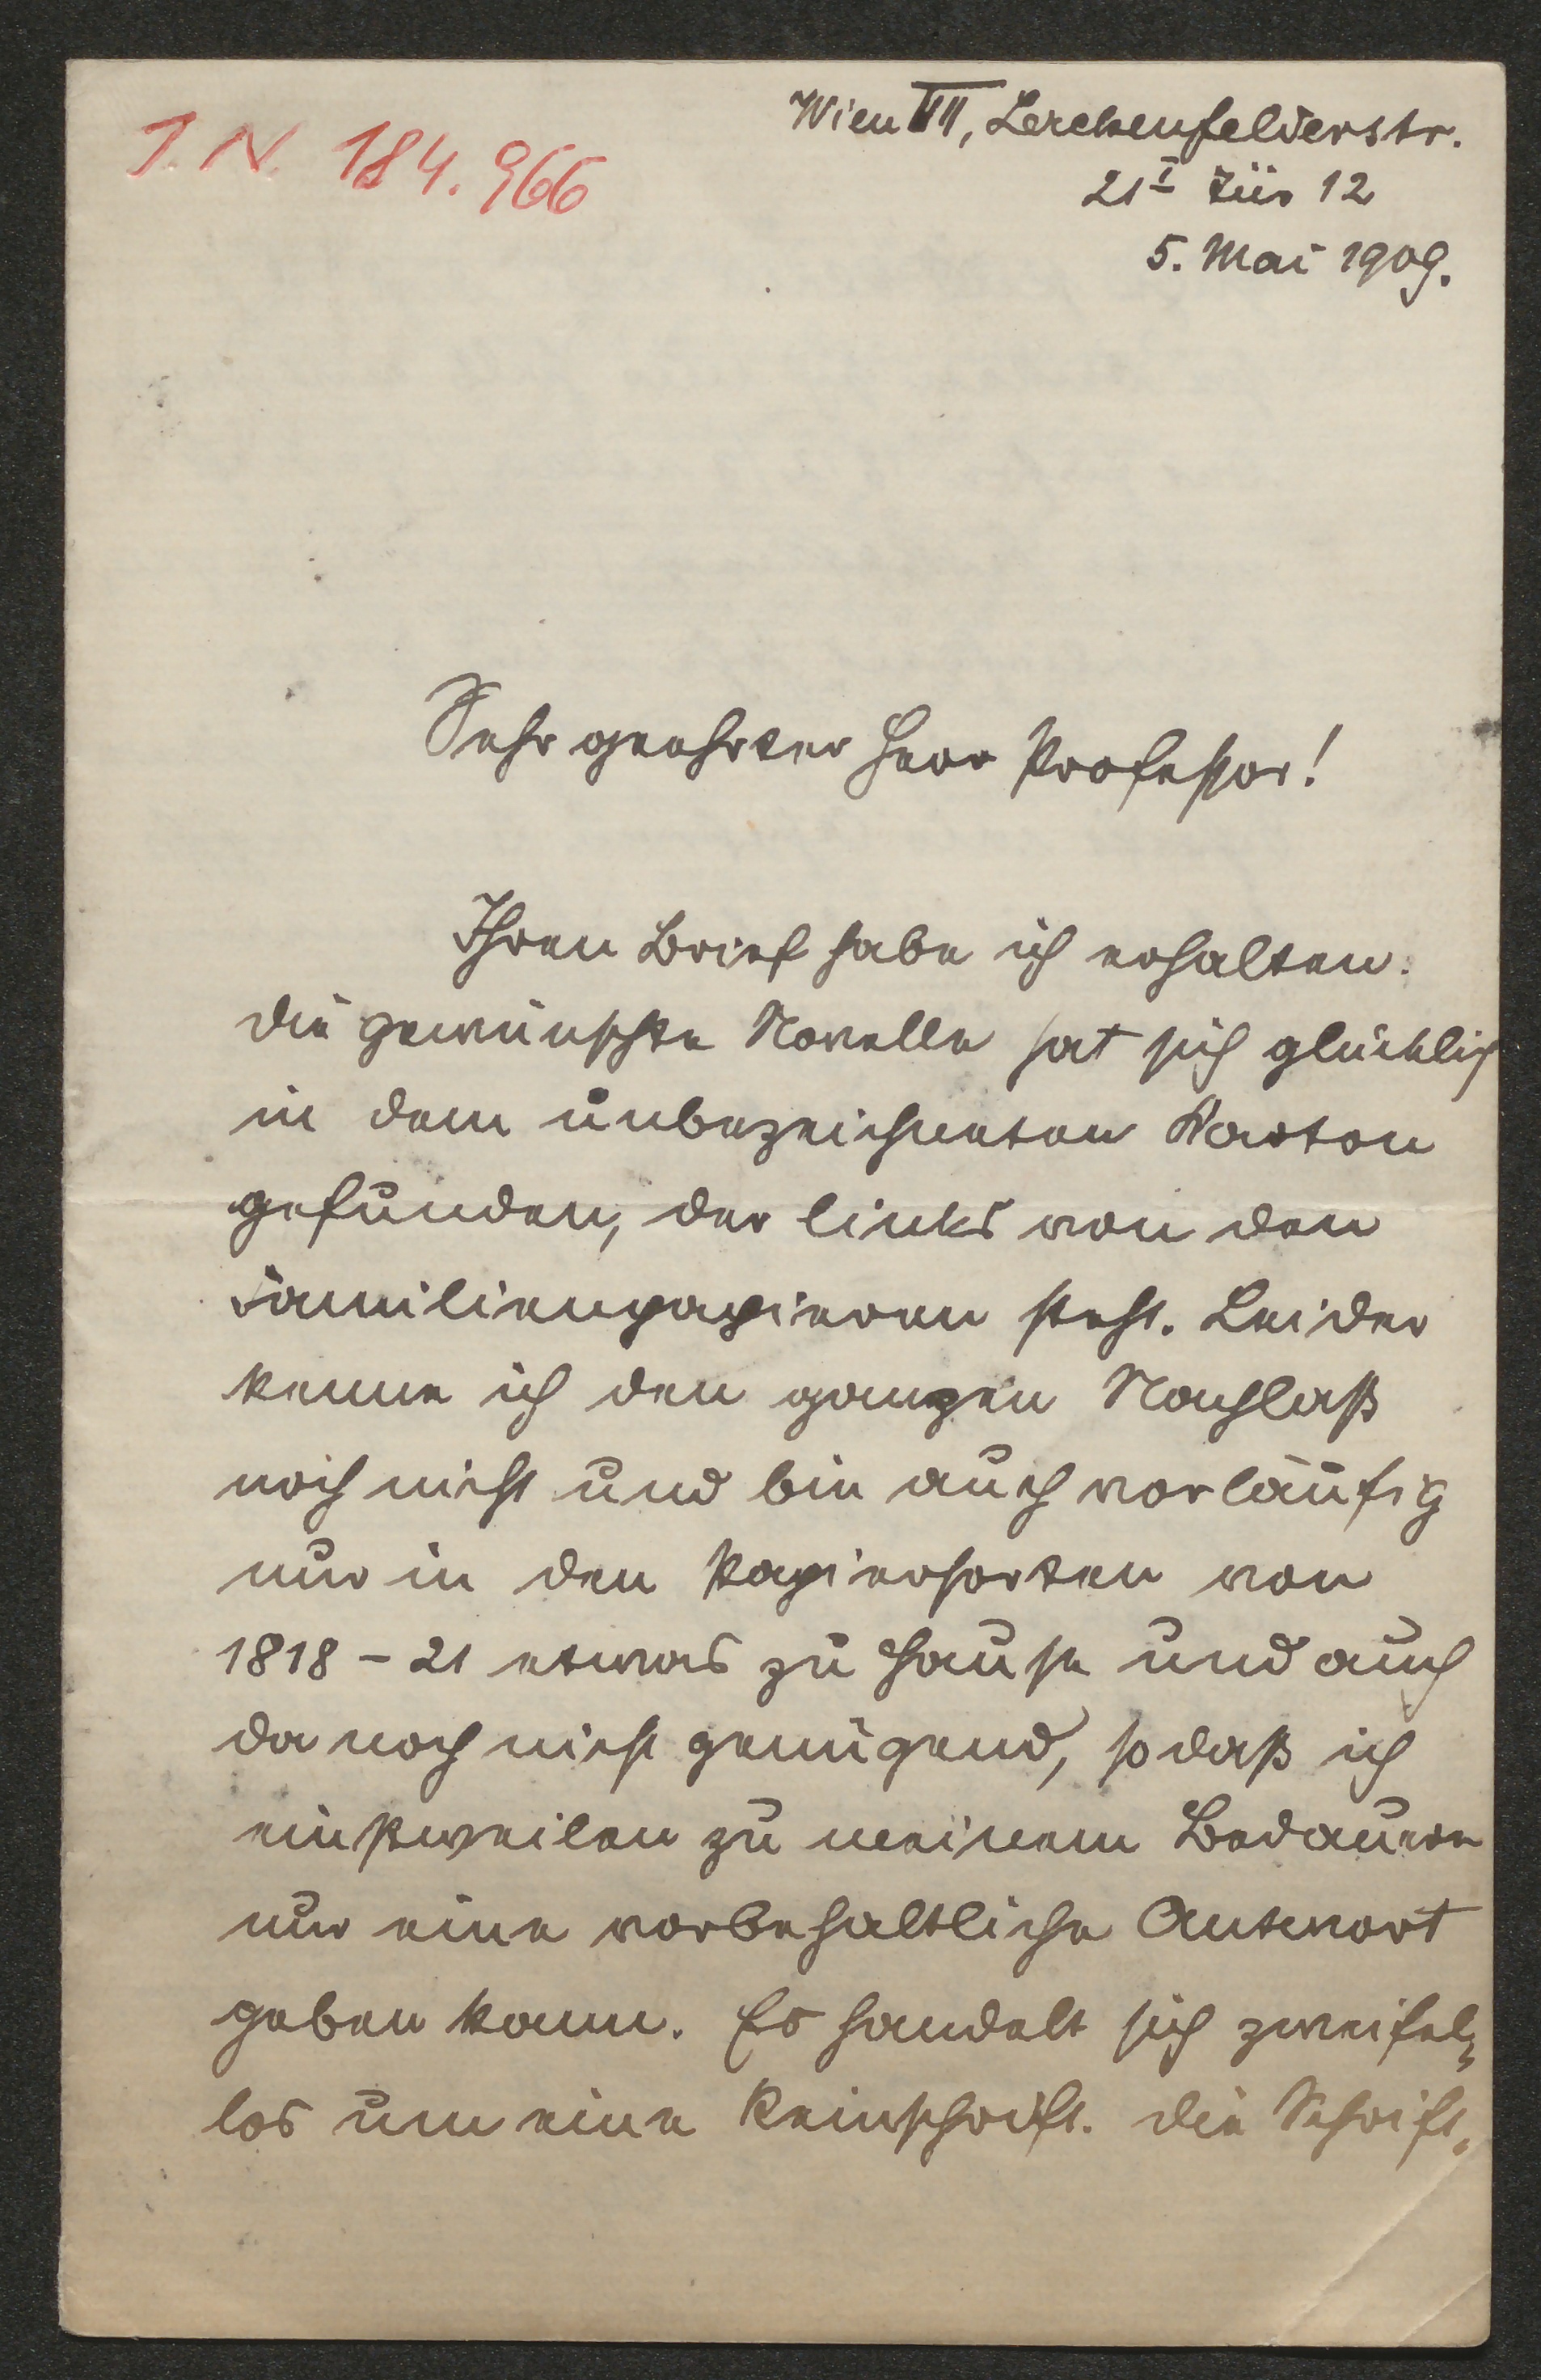 I. N. 184.966
Wien VII, Lerchenfelderstr.
21 I Tür 12
5. Mai 1909.
Sehr geehrter Herr Professor!
Ihren Brief habe ich erhalten.
Die gewünschte Novelle hat sich glücklich
in dem unbezeichneten Karton
gefunden, der links von den
Familienpapieren steht. Leider
kenne ich den ganzen Nachlaß
noch nicht und bin auch vorläufig
nur in den Papiersorten von
1818 - 21 etwas zu Hause und auch
da noch nicht genügend, so daß ich
einstweilen zu meinem Bedauern
nur eine vorbehaltliche Antwort
geben kann. Es handelt sich zweifel=
los um eine Reinschrift. Die Schrift,